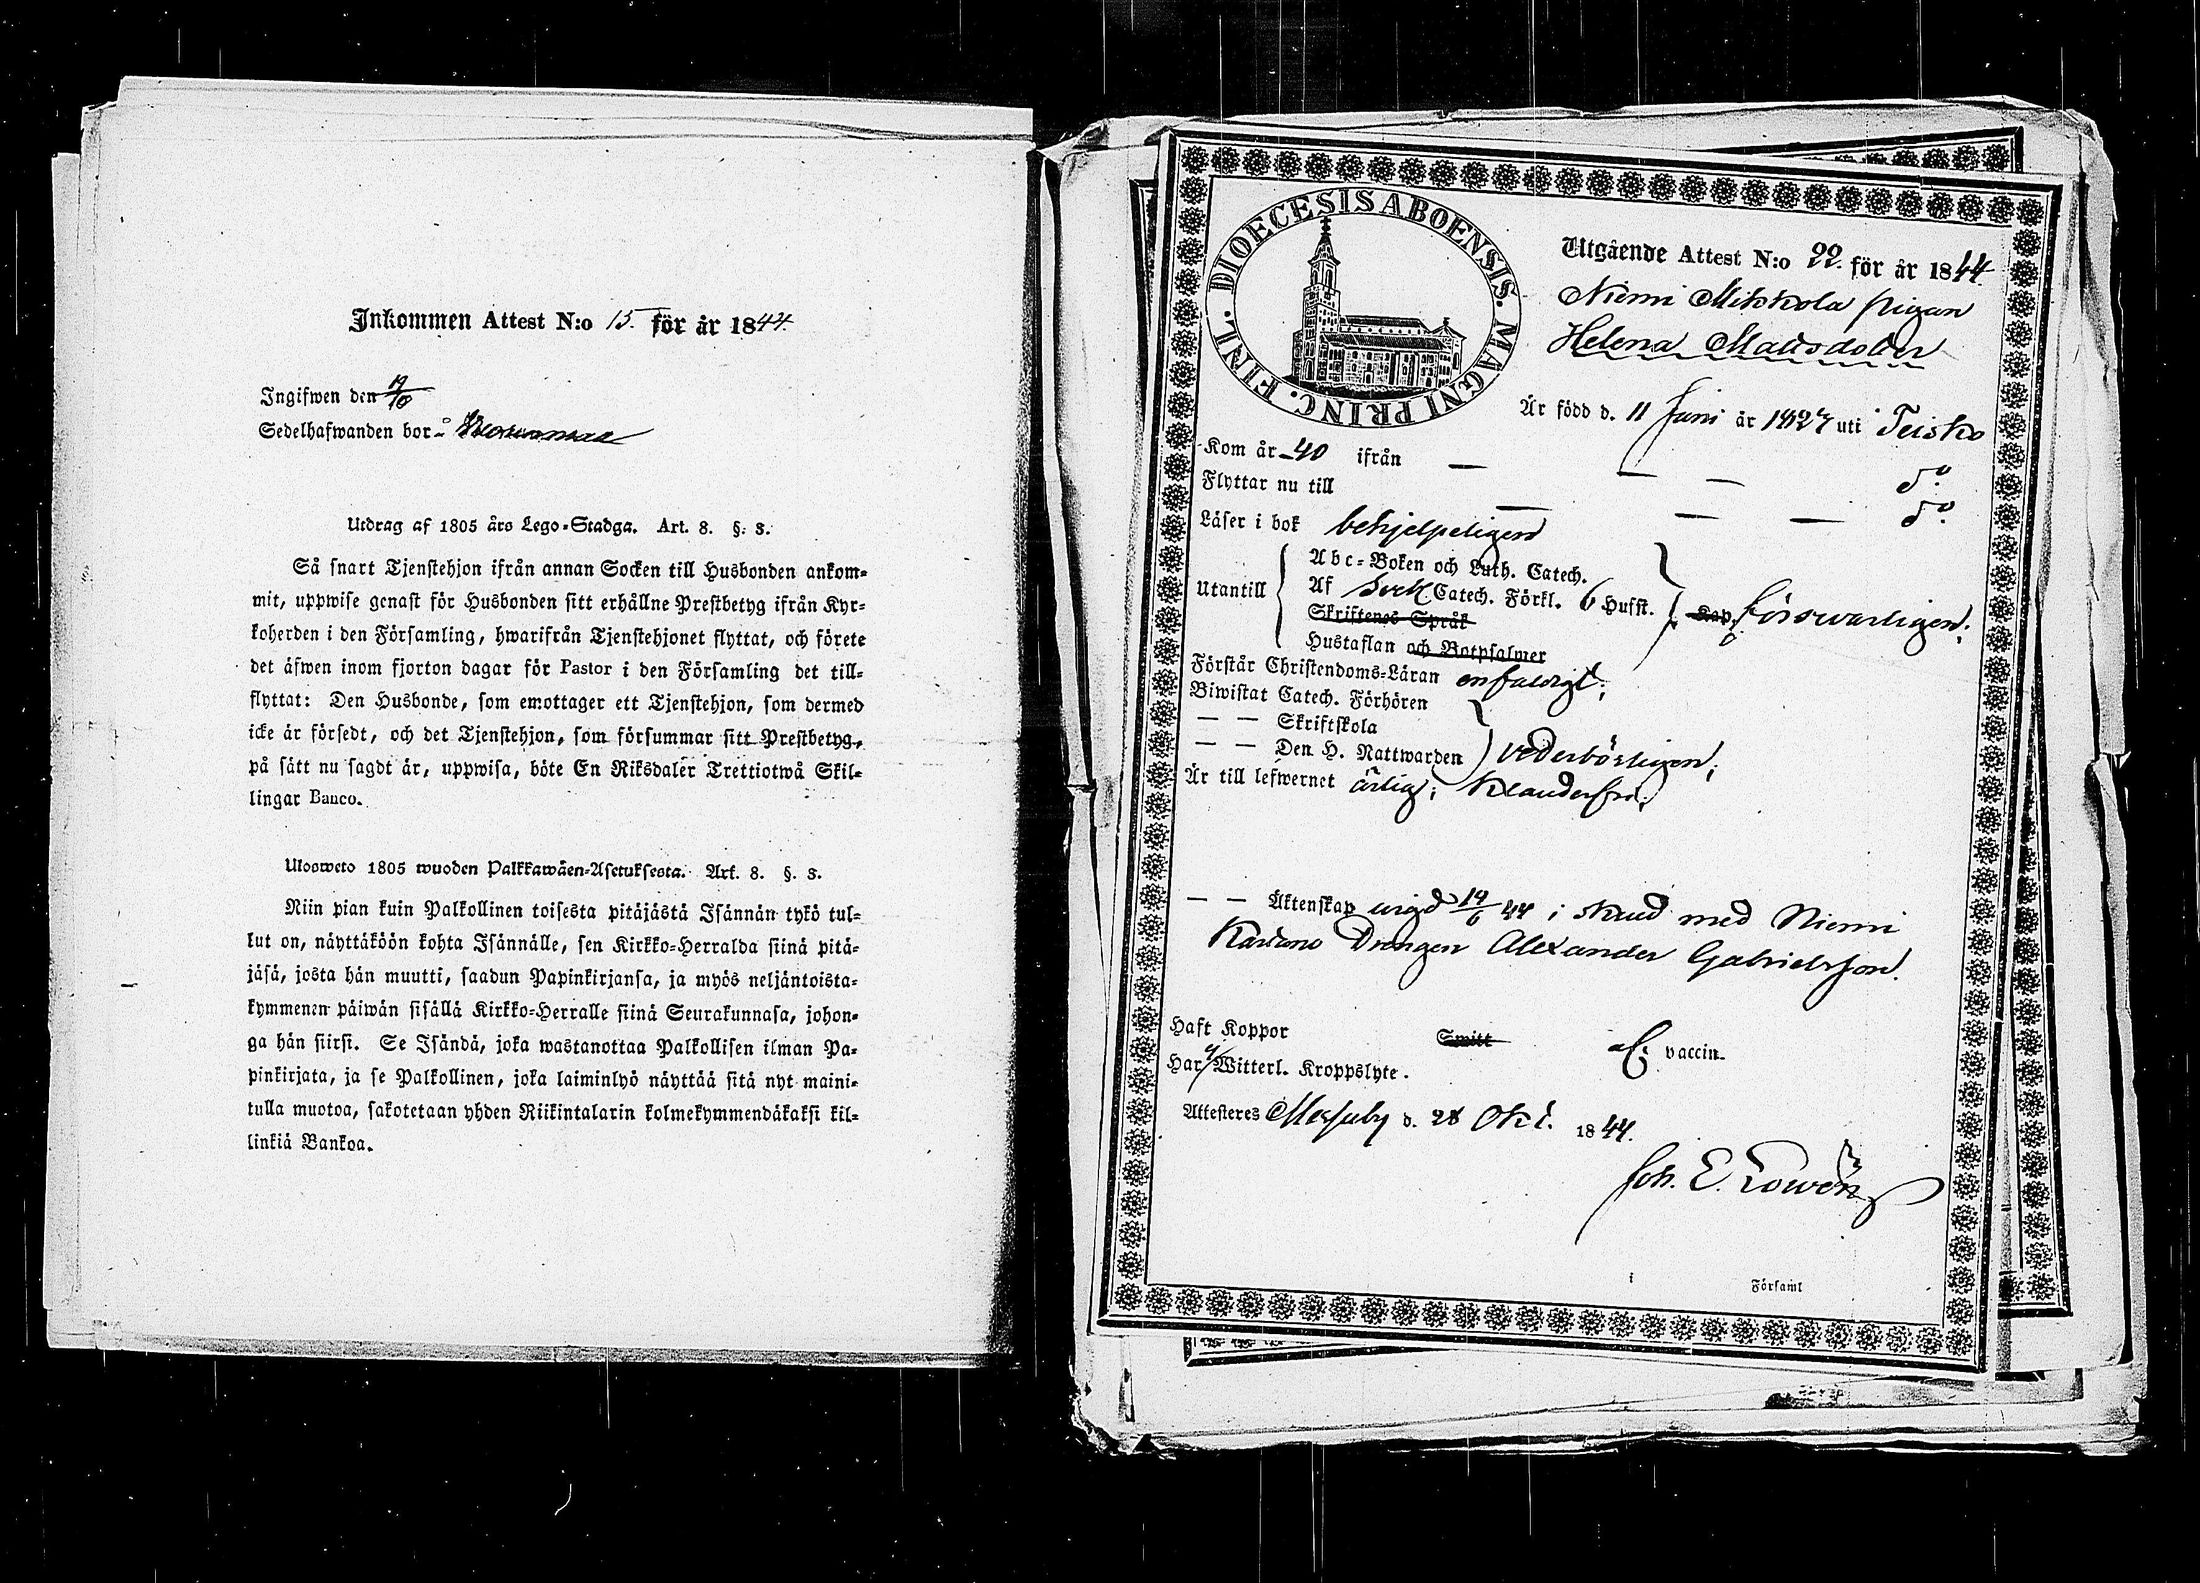 Inkommen Attest N:o 15. för år 1844.
Ingifwen den 19/10
Sedelhafwanden bor å
Utdrag af 1805 års Lego-Stadga. Art. 8. §. 3.
Så snart Tjenstehjon ifrån annan Socken till Husbonden ankom-
mit, uppwise genast för Husbonden sitt erhållne Prestbetyg ifrån Kyr-
koherden i den Församling, hwarifrån Tjenstehjonet flyttat, och förete
det äfwen inom fjorton dagar för Pastor i den Församling det till-
flyttat: Den Husbonde, som emottager ett Tjenstehjon, som dermed
icke är försedt, och det Tjenstehjon, som försummar sitt Prestbetyg,
på sätt nu sagdt är, uppwisa, böte En Riksdaler Trettiotwå Skil-
lingar Banco.
Ulosweto 1805 wuoden Palkkawäen-Asetuksesta. Art. 8. §. 3.
Niin pian kuin Palkollinen toisesta pitäjästä Isännän tykö tul-
lut on, näyttäköön kohta Isännälle, sen Kirkko-Herralda siinä pitä-
jäsä, josta hän muutti, saadun Papinkirjansa, ja myös neljäntoista-
kymmenen päiwän sisällä Kirkko-Herralle siinä Seurakunnasa, johon-
ga hän siirsi. Se Isändä, joka wastanottaa Palkollisen ilman Pa-
pinkirjata, ja se Palkollinen, joka laiminlyö näyttää sitä nyt maini-
tulla muotoa, sakotetaan yhden Riikintalarin kolmekymmendäkaksi kil-
linkiä Bankoa.
DIOECESIS ABOENSIS. MAGNI PRINC. FINL.
Utgående Attest N:o 22. för år 1844.
Niemi Mikkola pigan
Helena Mattsdotter
Är född d. 11 Juni år 1827 uti Teisko
Kom år 40 ifrån — — — do
Flyttar nu till — — — do
Läser i bok behjelpeligen
Utantill
Abc-Boken och Luth. Catech.
Af Sveb Catech. Förkl. 6 Hufst.
Skriftenes Språk
Hustaflan och Botpsalmer
Kap. försvarligen;
Förstår Christendoms-Läran enfaldigt;
Biwistat Catech. Förhören
— — Skriftskola
— — Den H. Nattwarden vederbörligen;
Är till lefwernet ärlig; klanderfri;
— — Äktenskap wigd 19/6 44 i stånd med Niemi
Drengen Alexander Gabrielsson.
Haft Koppor Smitt af vaccin.
Har Witterl. Kroppslyte.
Attesteres Messuby d. 28 Okt. 1844.
Joh. E. Lowén
i Församl